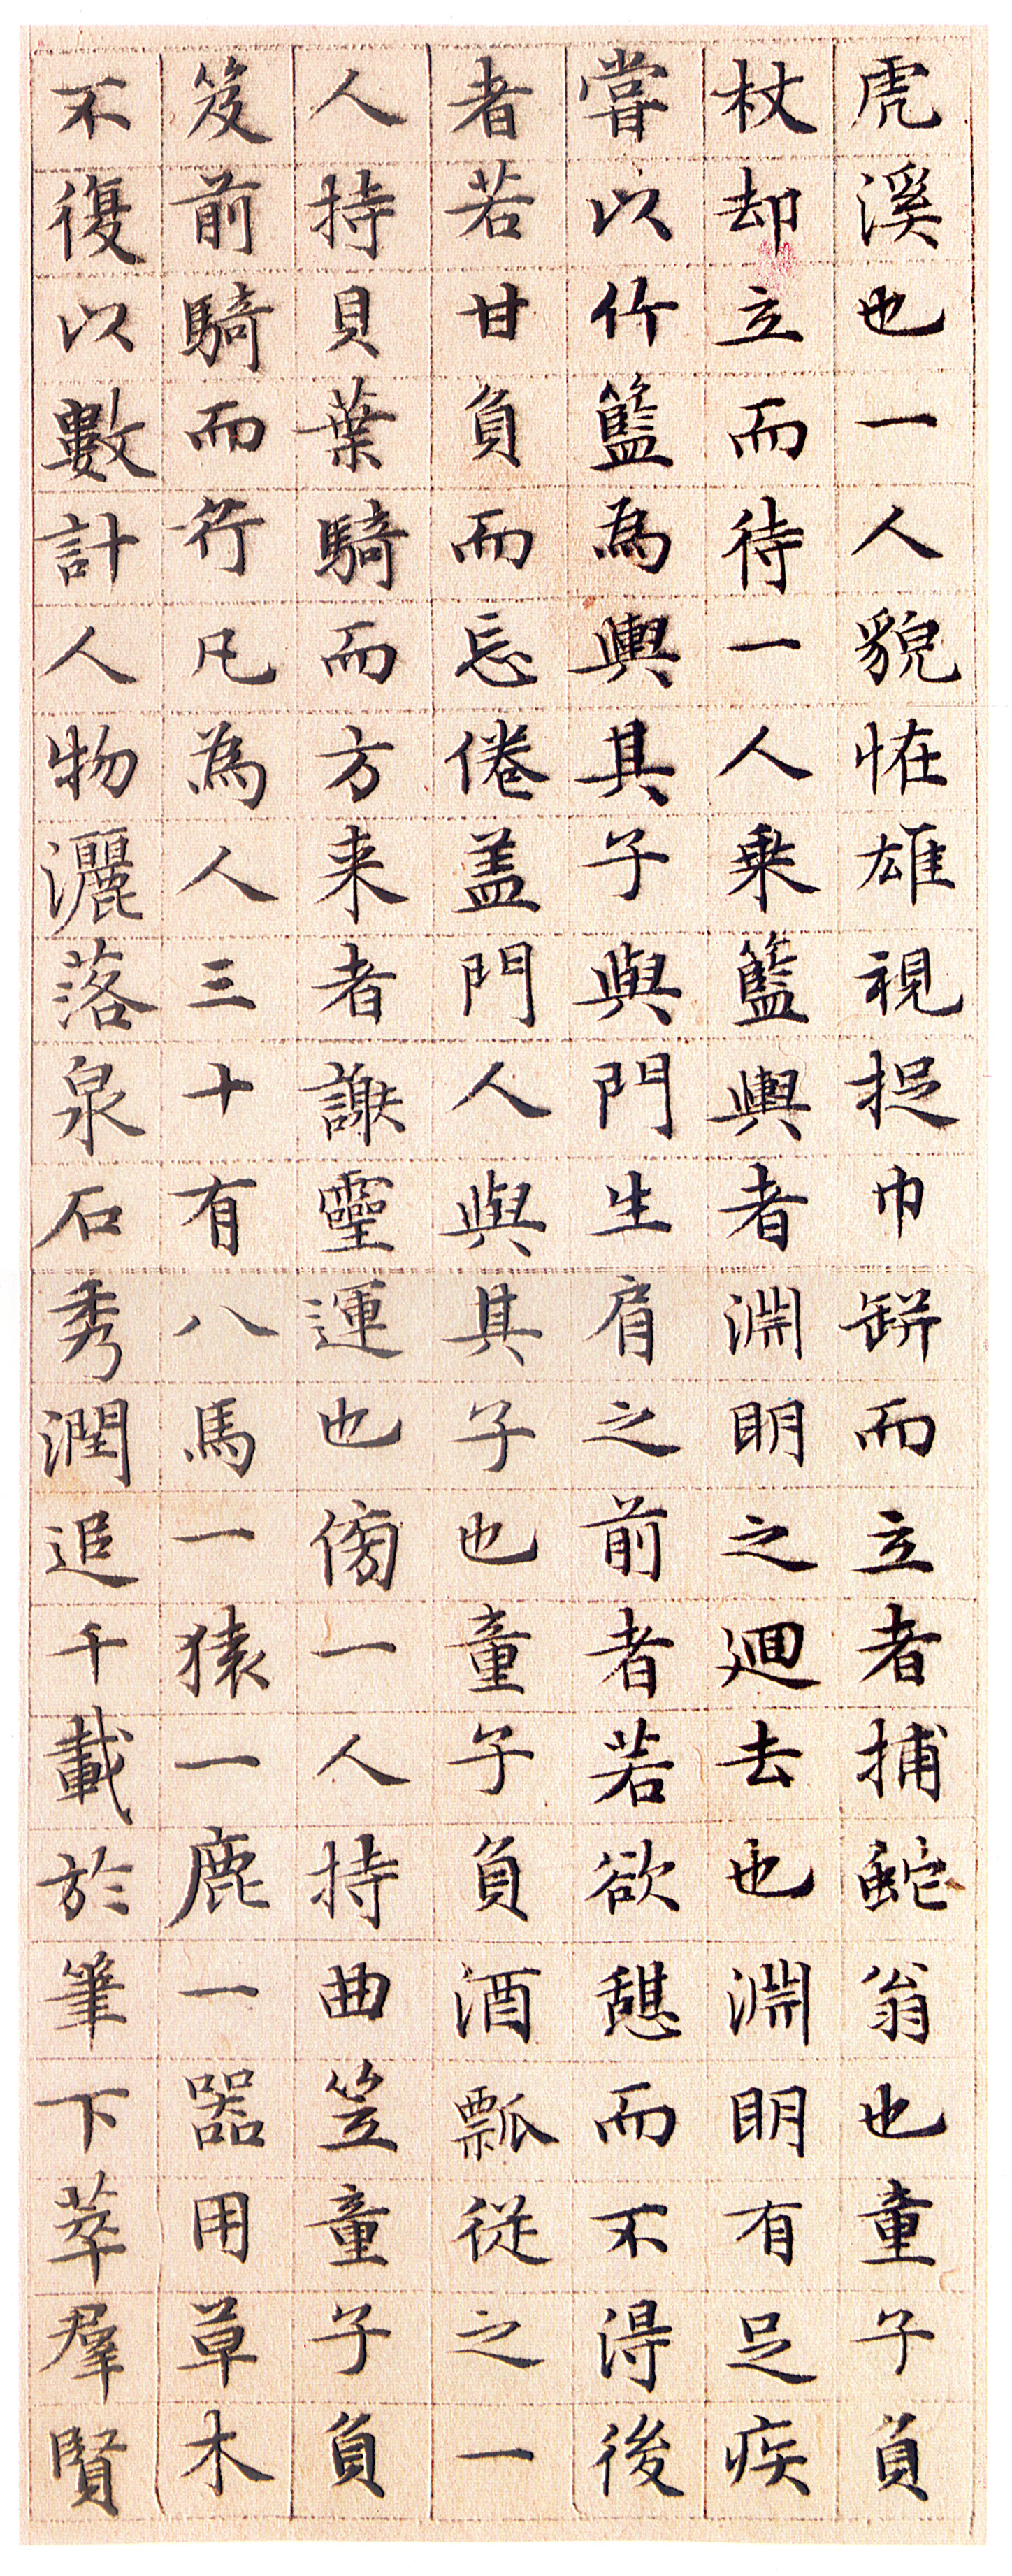 虎溪也一人貌恠雄視捉巾缾而立者捕虵翁也童子負
杖却立而待一人乗籃輿者淵明之廻去也淵明有足疾
嘗以竹籃為輿其子與門生肩之前者若欲憩而不得後
者若甘負而忘倦盖門人與其子也童子負酒瓢従之一
人持貝葉騎而方来者謝靈運也傍一人持曲笠童子負
笈前騎而行凡為人三十有八馬一猿一鹿一器用草木
不復以數計人物灑落泉石秀潤追千載於筆下萃羣賢